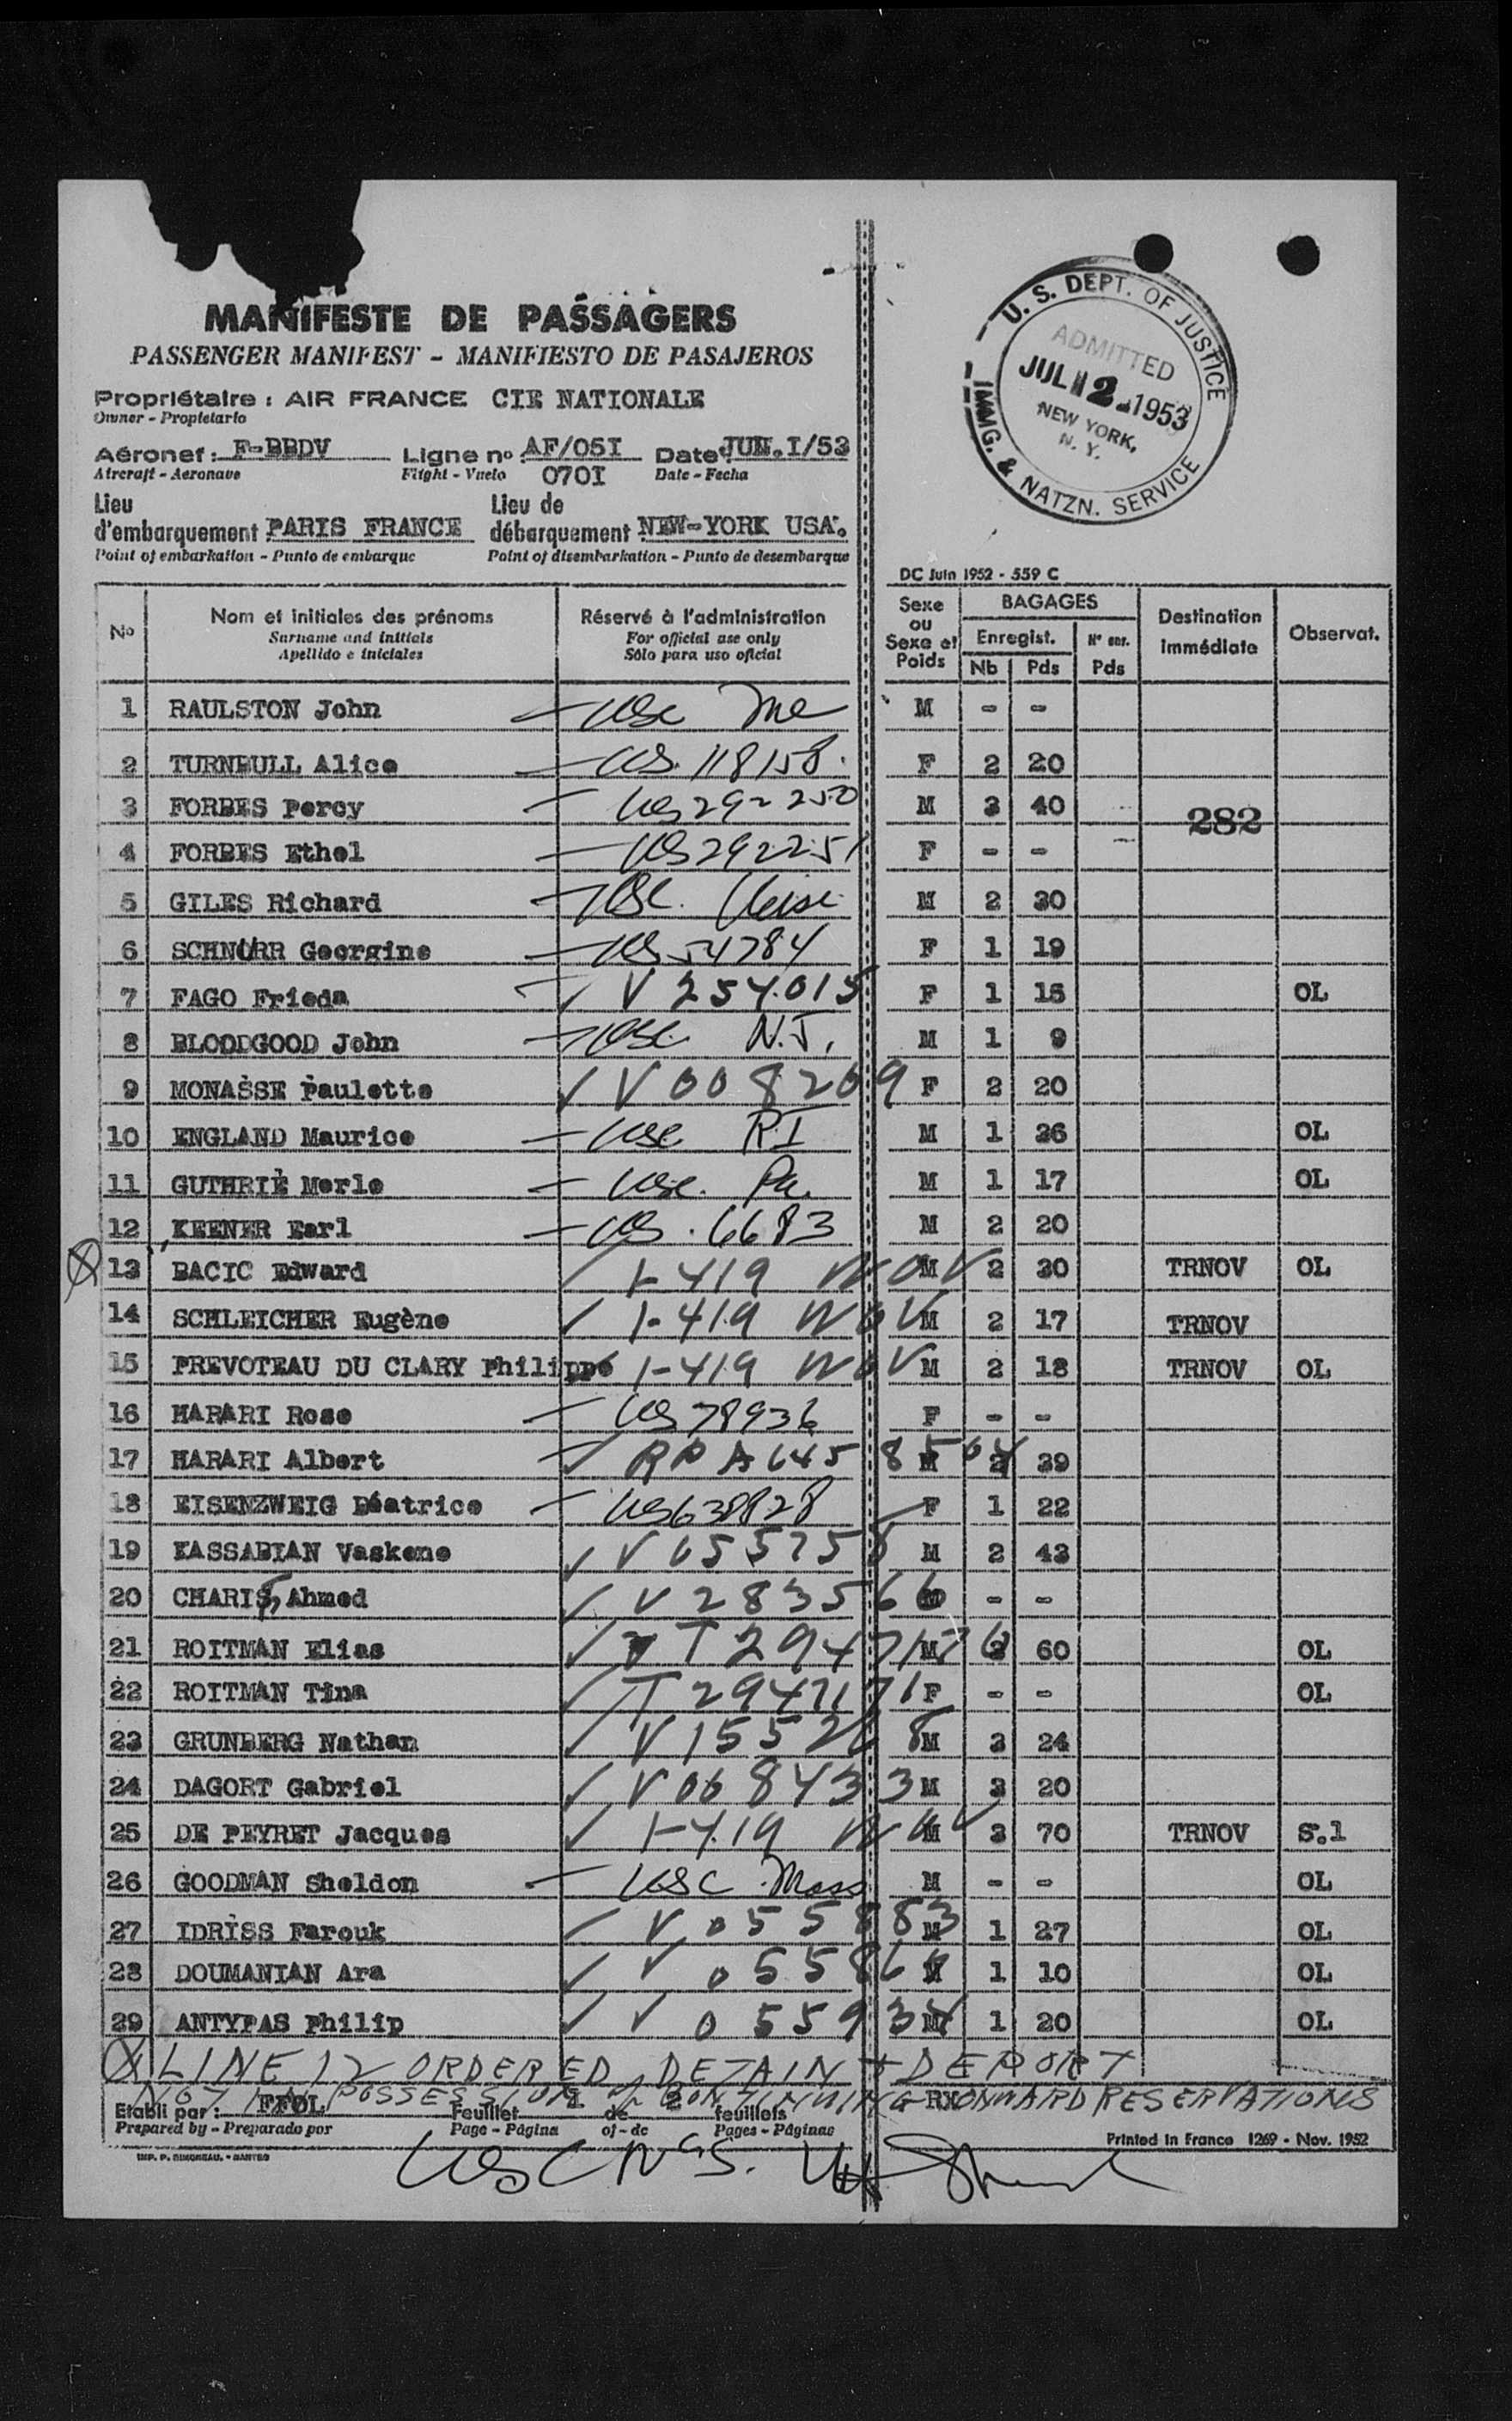 MANIFESTE DE PASSAGERS
PASSENGER MANIFEST - MANIFIESTO DE PASAJEROS
Propriétaire : AIR FRANCE CIE NATIONALE
Owner - Propietario
Aéronef : F-BBDV Ligne no AF/05I Date JUN.I/53
Aircraft - Aeronave Flight - Vuelo 070I Date - Fecha
Lieu d'embarquement PARIS FRANCE Lieu de débarquement NEW-YORK USA.
Point of embarkation - Punto de embarque Point of disembarkation - Punto de desembarque
U. S. DEPT. OF JUSTICE
ADMITTED
JUL 2 1953
NEW YORK,
N. Y.
IMMG. & NATZN. SERVICE
DC Juin 1952 - 559 C
No Nom et initiales des prénoms Réservé à l'administration Sexe ou Sexe et Poids BAGAGES Destination immédiate Observat.
Surname and initials For official use only Enregist. N' enr.
Apellido e iniciales Sólo para uso oficial Nb Pds Pds
1 RAULSTON John usc Me M - -
2 TURNBULL Alice US 118158 F 2 20
3 FORBES Percy US 292250 M 3 40
282
4 FORBES Ethel US 292251 F - -
5 GILES Richard usc M 2 30
6 SCHNURR Georgine US 54784 F 1 19
7 FAGO Frieda V 254015 F 1 15 OL
8 BLOODGOOD John usc N.J. M 1 9
9 MONASSE Paulette V 008209 F 2 20
10 ENGLAND Maurice usc RI M 1 26 OL
11 GUTHRIE Merle usc. Pa. M 1 17 OL
12 KEENER Earl US 6683 M 2 20
13 BACIC Edward I-419 WOV M 2 30 TRNOV OL
14 SCHLEICHER Eugène I-419 WOV M 2 17 TRNOV
15 PREVOTEAU DU CLARY Philippe I-419 WOV M 2 18 TRNOV OL
16 HARARI Rose US 78936 F - -
17 HARARI Albert RP A645 8504 M 2 39
18 EISENZWEIG Béatrice US 638828 F 1 22
19 KASSABIAN Vaskene V 055758 M 2 43
20 CHARIF, Ahmed V 283566 M - -
21 ROITMAN Elias T 2947176 M 3 60 OL
22 ROITMAN Tina T 2947171 F - - OL
23 GRUNBERG Nathan V 155268 M 3 24
24 DAGORT Gabriel V 068433 M 3 20
25 DE PEYRET Jacques I-419 WOV M 3 70 TRNOV S.1
26 GOODMAN Sheldon USC Mass M - - OL
27 IDRISS Farouk V 055883 M 1 27 OL
28 DOUMANIAN Ara V 05586 M 1 10 OL
29 ANTYPAS Philip V 055934 M 1 20 OL
LINE 12 ORDERED DETAIN + DEPORT
NOT IN POSSESSION OF CONTINUING ONWARD RESERVATIONS
Etabli par : FFOL Feuillet 1 de 2 feuillets
Prepared by - Preparado por Page - Página of - de Pages - Páginas
Printed in France 1269 - Nov. 1952
IMP. P. DIMOREAU. - NANTES